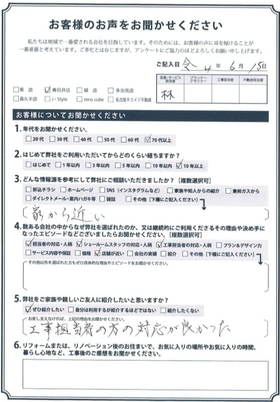 お客様のお声をお聞かせください
私たちは地域で一番愛される会社を目指しています。そのためには、お客様の声に耳を傾けることが
一番重要と考えています。ご多忙とは存じますが、アンケートにご協力のほどよろしくお願い致します。
ご記入日 令 4年 6月 18日
林
お客様についてお聞かせください
1. 年代をお聞かせください。
20代 30代 40代 50代 60代 70代以上
2. はじめて弊社をご利用いただいてからどのくらい経ちますか？
はじめて 1年以内 3年以内 10年以内 10年以上
3. どんな情報源を参考にして弊社にご相談いただきましたか？【複数選択可】
折込チラシ ホームページ SNS（インスタグラムなど） ご家族や知人からの紹介 東邦ガスから
ダイレクトメール・案内ハガキ 雑誌 その他（下欄にご記入ください）
家から近い
4. 数ある会社の中からなぜ弊社を選ばれたのか、又は継続的にご利用くださるその理由や決め手に
なったエピソードなどございましたらお聞かせください。【複数選択可】
担当者の対応・人柄 ショールームスタッフの対応・人柄 工事担当者の対応・人柄 プラン&デザイン力
サービス内容や保証 価格 店舗が近い 会社の実績 紹介 その他（下欄にご記入ください）
5. 弊社をご家族や親しいご友人に紹介したいと思いますか？
ぜひ紹介したい 自分は利用するが紹介するほどではない 紹介したくない
工事担当者の方の対応が良かった
6. リフォームまたは、リノベーション後のお住まいで、お気に入りの場所やお気に入りの時間、
暮らし心地など、工事後のご感想をお聞かせください。